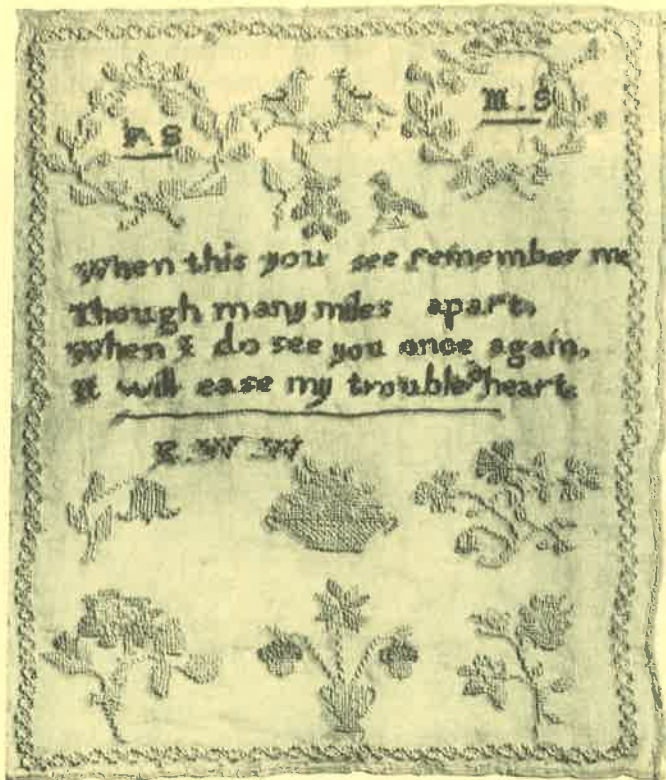 F. S
M. S
When this you see remember me
Though many miles apart,
When I do see you once again,
It will ease my troubled heart.
E. W. W